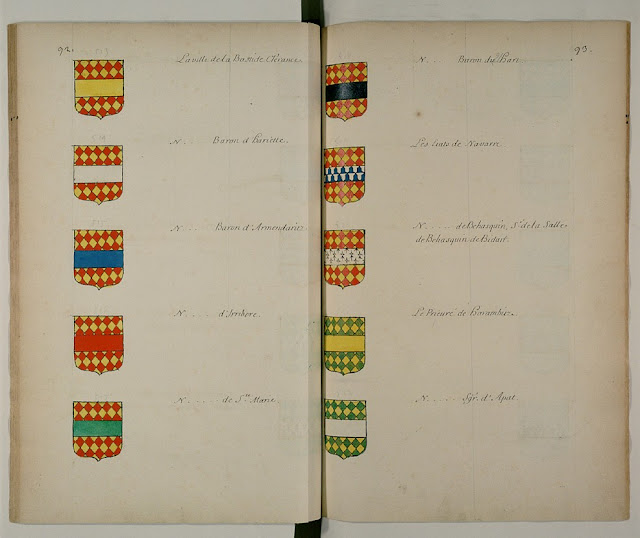 92.
La ville de la Bastide Clerance
N. . . . Baron d'Uriette.
N. . . . Baron d'Armendaritz
N. . . . . d'Irribere.
N. . . . . de S.te Marie.
93.
N. . . . Baron du Hart
Les Etats de Navarre
N. . . . . de Behasquin, Sr. de la Salle
de Behasquin de Bidait.
Le Prieuré de Harambitz.
N. . . . . Sgr. d'Apat.